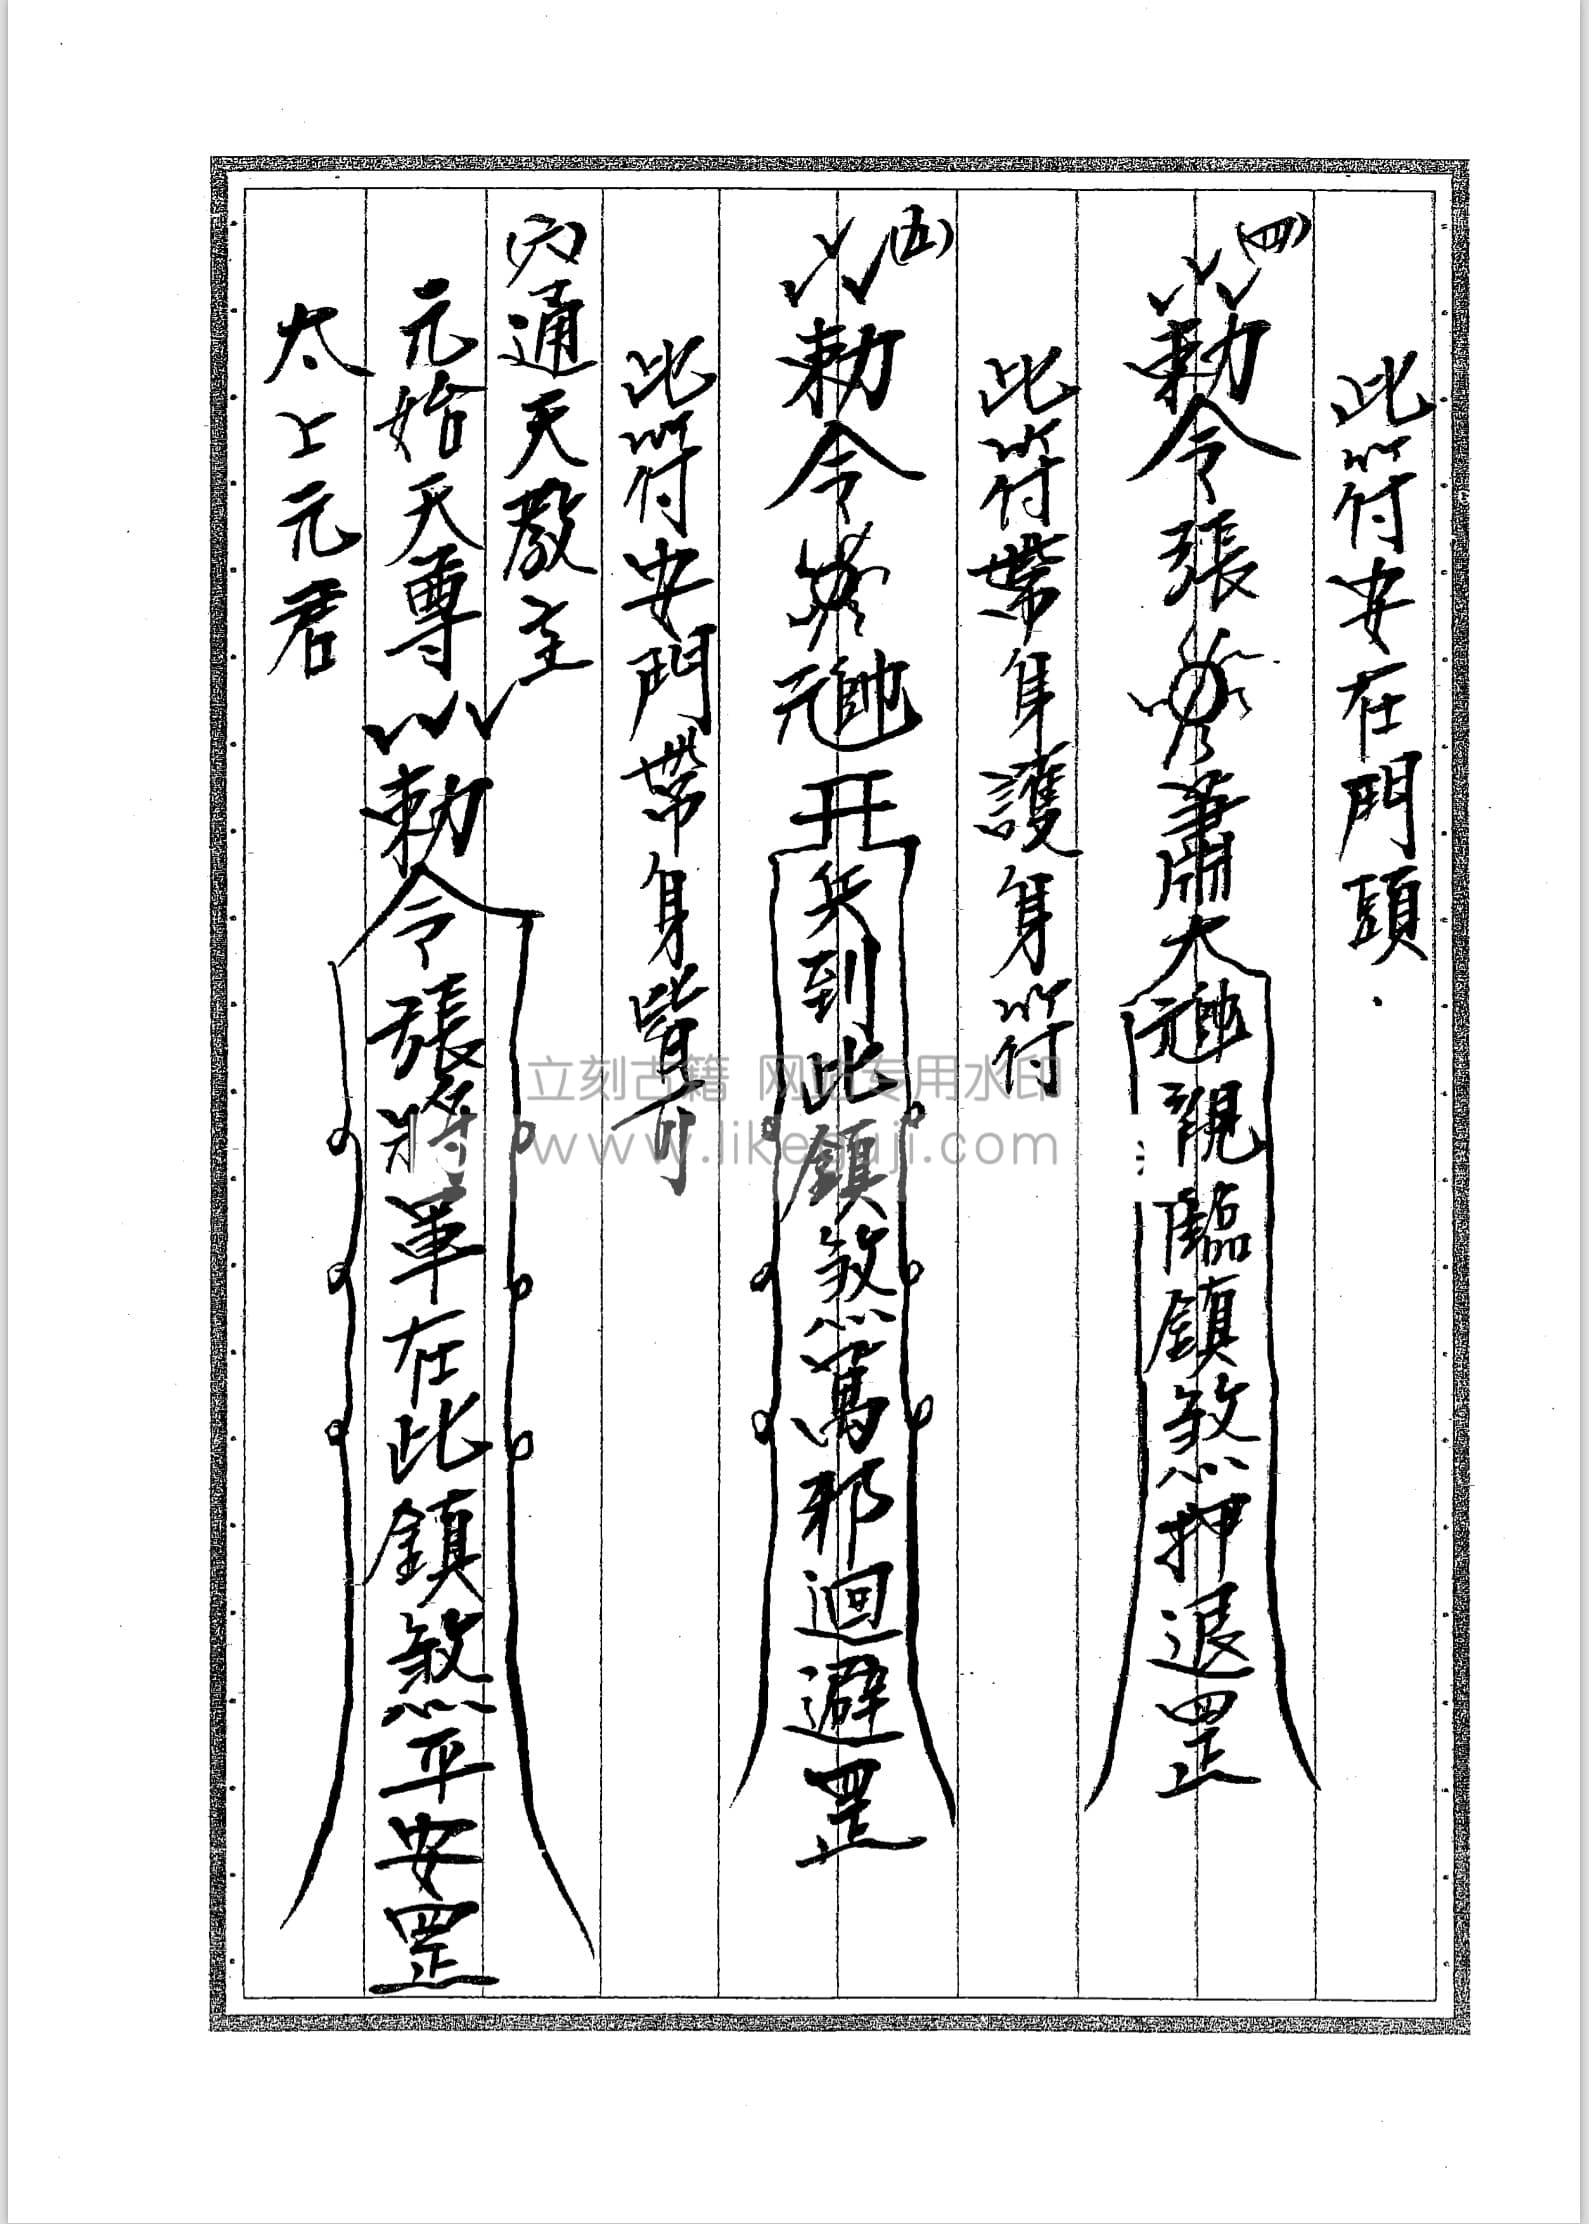 此符安在門頭.
(四)
勅令張蕭大元帥親臨鎮煞押退罡
此符帶身護身符
(五)
勅令元帥兵到此鎮煞萬邪迴避罡
此符安門帶身皆可
(六)通天教主
元始天尊勅令張將軍在此鎮煞平安罡
太上元君
立刻古籍 网站专用水印
www.likeguji.com